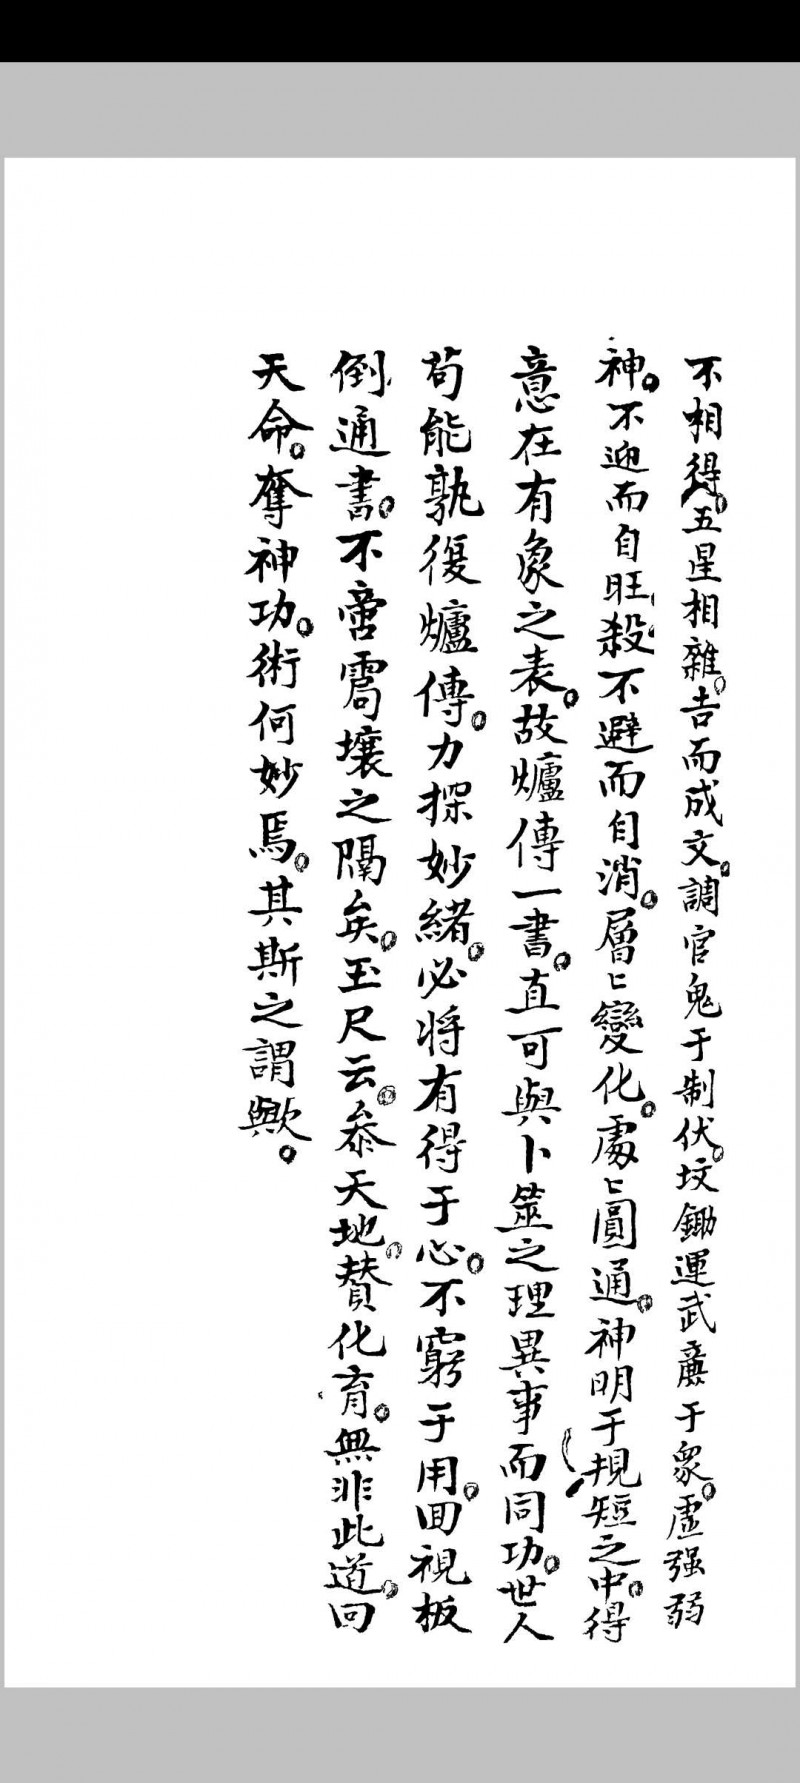 不相得。五星相雜。吉而成文。調官鬼于制伏。坟鋤運武廉于衆。虛强弱
神。不迎而自旺。殺不避而自消。層〻變化。處〻圓通。神明于規短之中。得
意在有象之表。故爐傳一書。直可與卜筮之理異事而同功。世人
苟能孰復爐傳。力探妙緒。必將有得于心。不窮于用。囬視板
倒通書。不啻霄壤之隔矣。玉尺云。叅天地。賛化育。無非此道。囬
天命。奪神功。術何妙焉。其斯之謂歟。